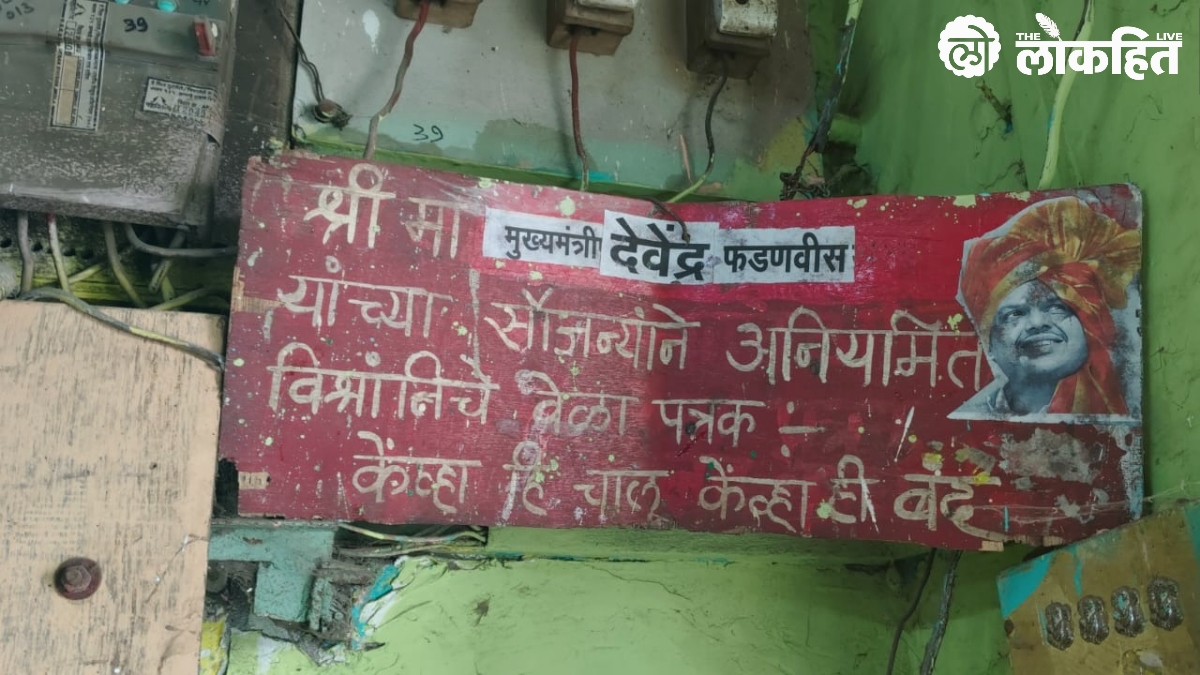 THE लोकहित LIVE
39
39
श्री मा मुख्यमंत्री देवेंद्र फडणवीस
यांच्या सौजन्यांने अनियमित
विश्रांतिचे वेळा पत्रक :-
केंव्हा हि चालू केंव्हा ही बंद